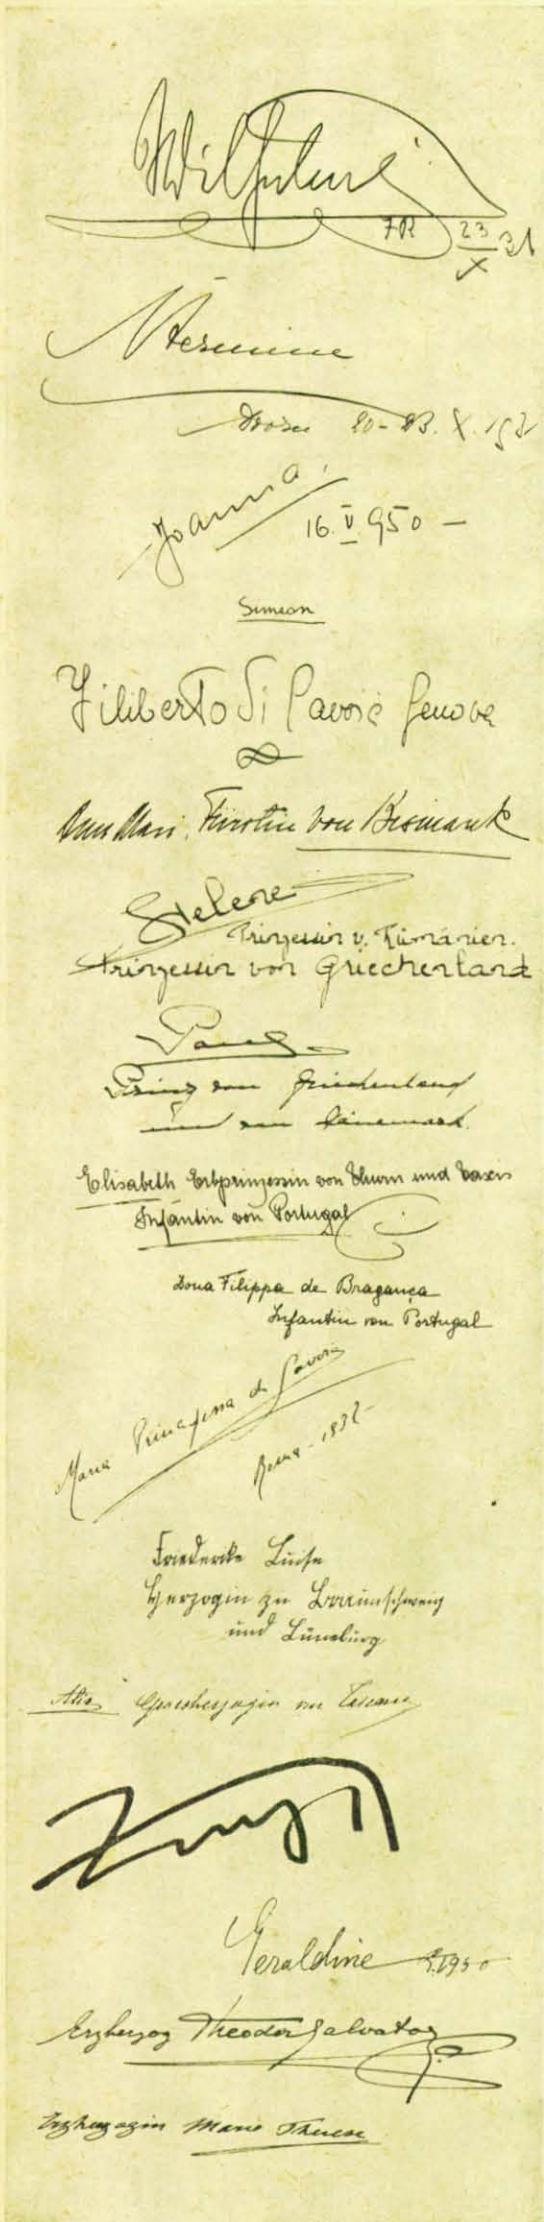 Wilhelm
IR 23/X 31
Hermine
Doorn 20-23. X. 193
Joanna.
16. V 950 —
Simeon
Filiberto di Savoia Genova
Ann Mari, Fürstin von Bismarck
Helene
Prinzessin v. Rümänien.
Prinzessin von Griechenland
Paul
Prinz von Griechenland
und von Dänemark.
Elisabeth Erbprinzessin von Thurn und Taxis
Infantin von Portugal
Dona Filippa de Bragança
Infantin von Portugal
Maria Principessa di Savoia
Roma - 1932 -
Friederike Luise
Herzogin zu Braunschweig
und Lüneburg
Alix Grossherzogin von Toscana
Geraldine
Erzherzog Theodor Salvator
Erzherzogin Marie Therese